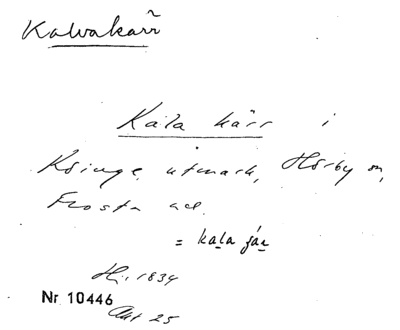 Kalvakärr
Kála kärr i
Ksinge utmark, Hörby sn,
Frosta hd.
= kala jär
H. 1834
Nr 10446
Akt 25